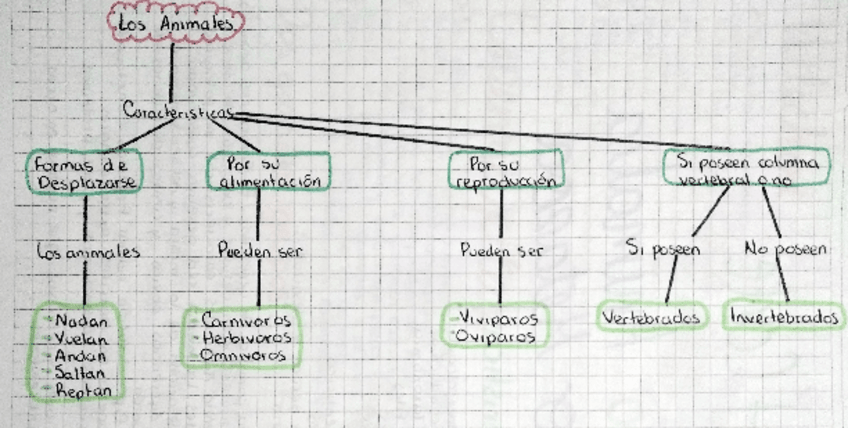 Los Animales
Caracteristicas
Formas de
Desplazarse
Por su
alimentación
Por su
reproducción
Si poseen columna
vertebral o no
Los animales
Pueden ser
Pueden ser
Si poseen
No poseen
- Nadan
- Vuelan
- Andan
- Saltan
- Reptan
- Carnivoros
- Herbivoros
- Omnivoros
- Viviparos
- Oviparos
Vertebrados
Invertebrados